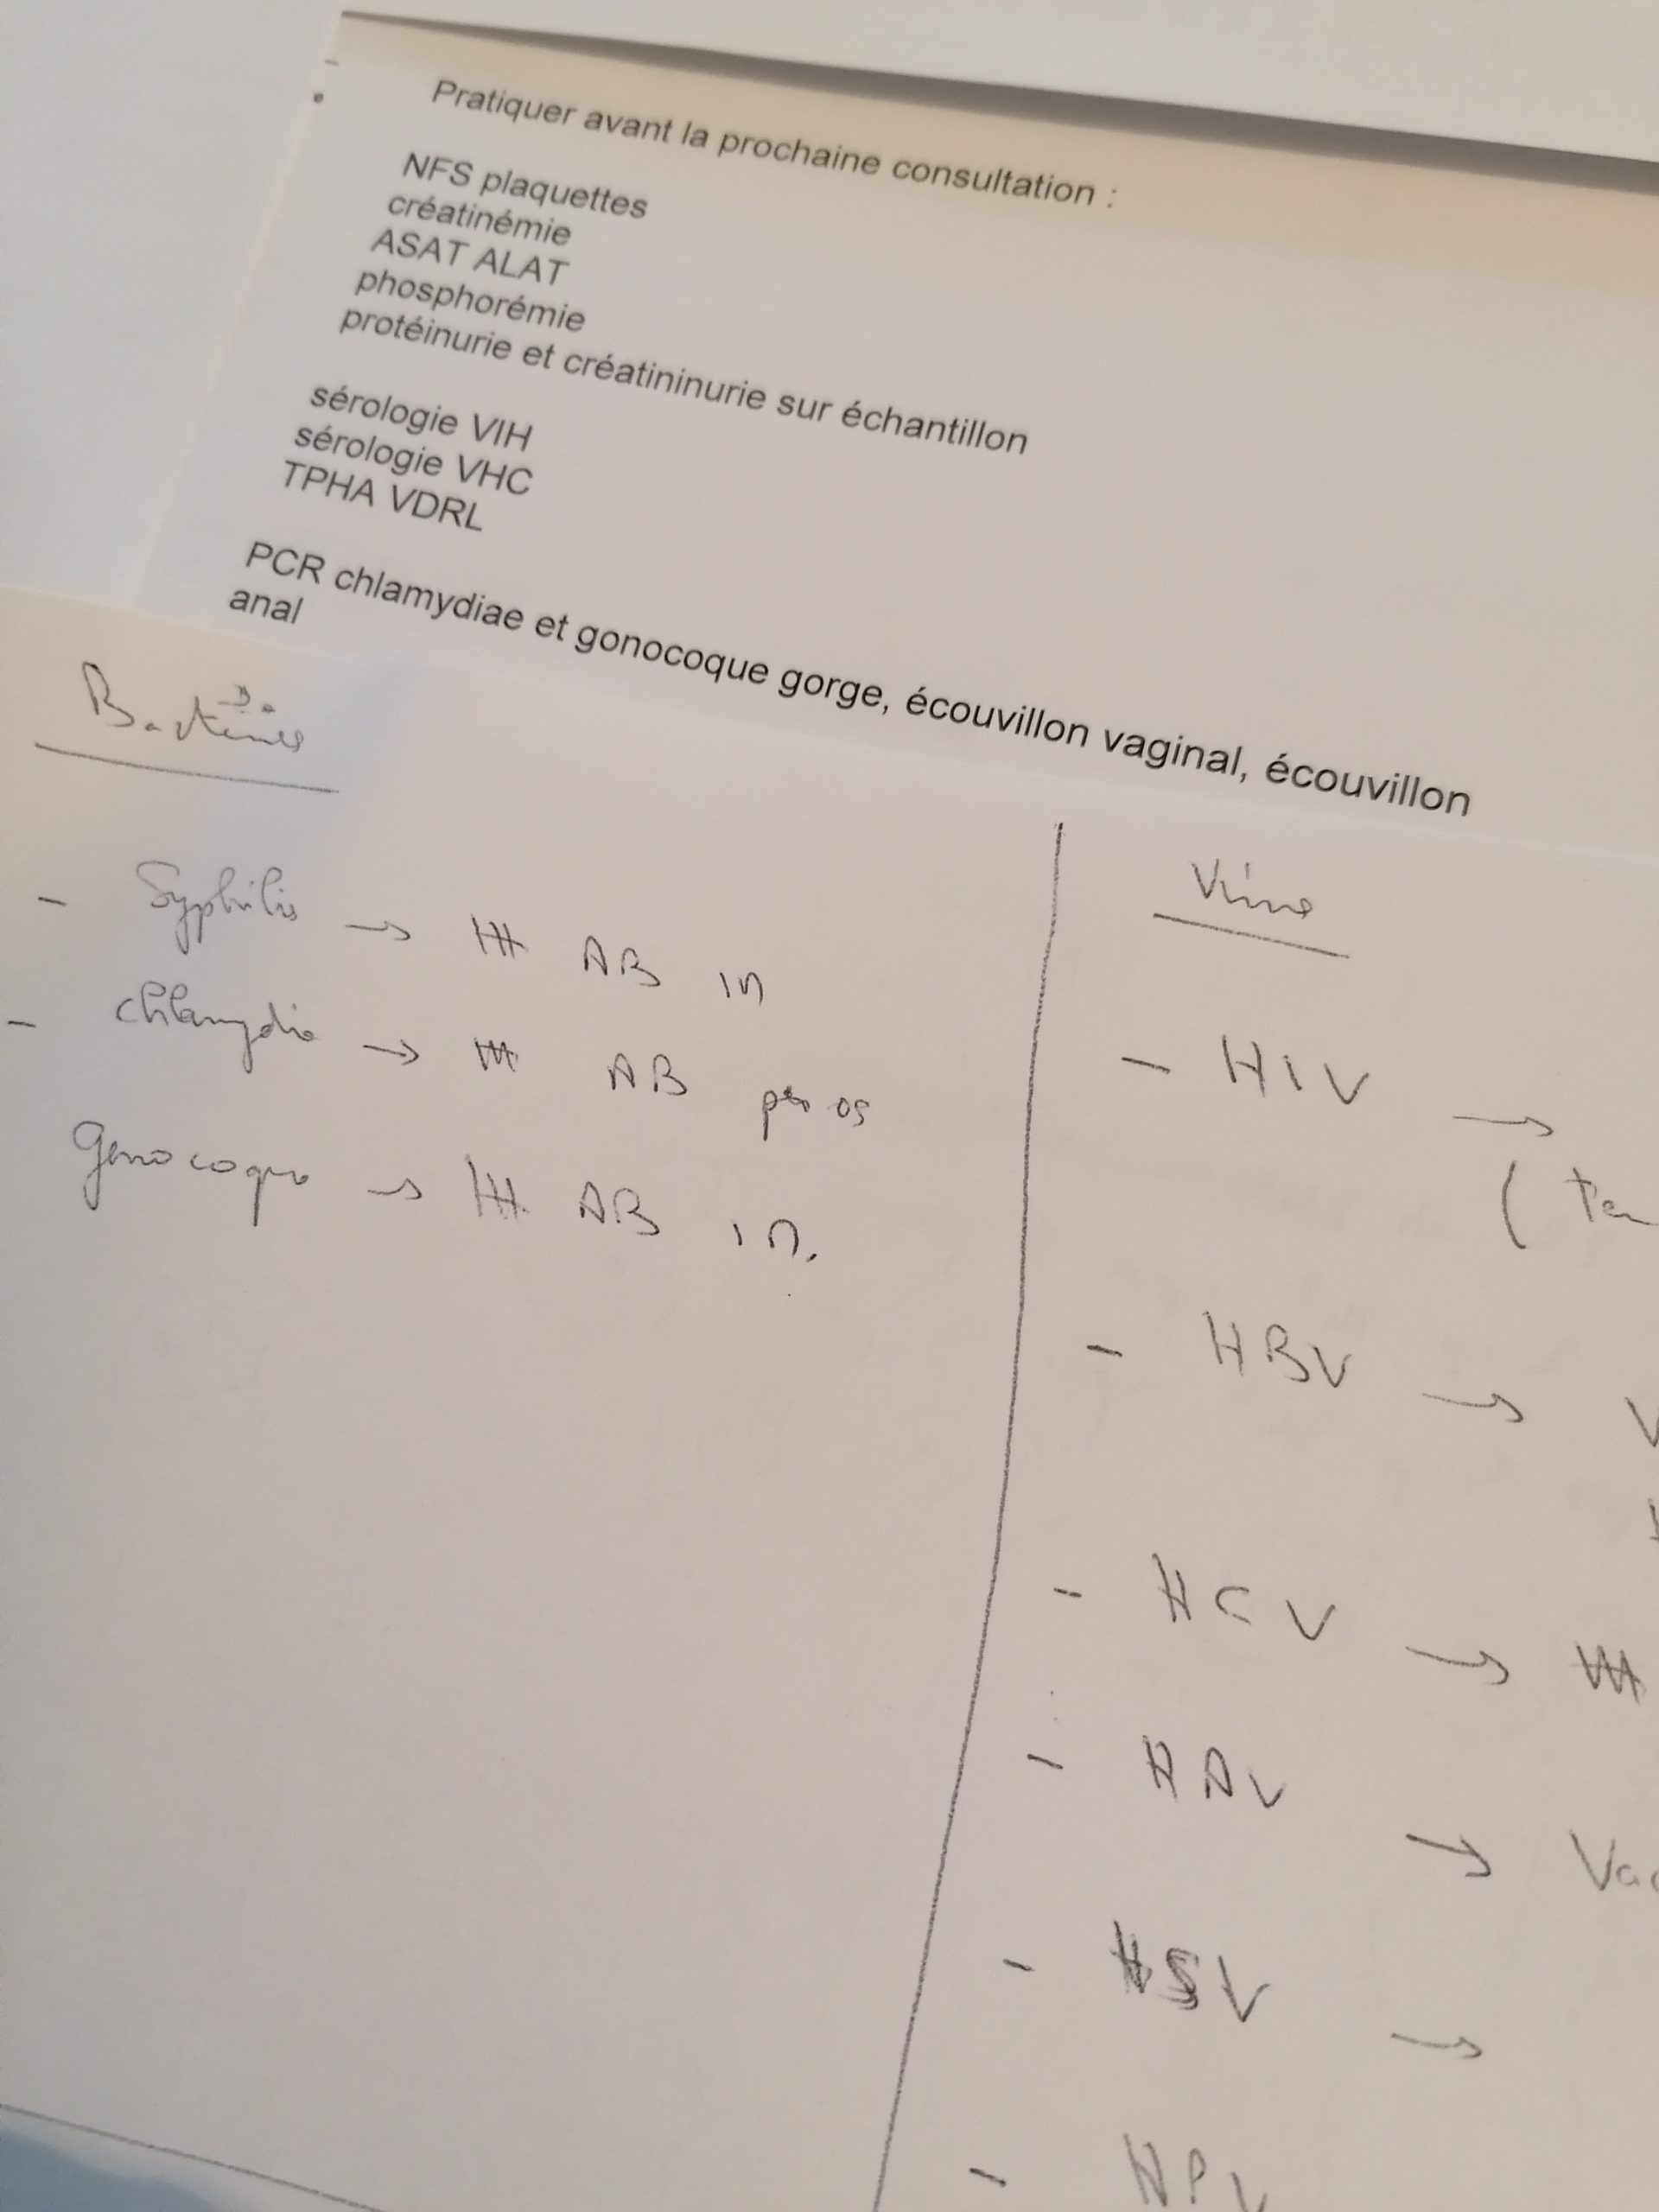 Pratiquer avant la prochaine consultation :
NFS plaquettes
créatinémie
ASAT ALAT
phosphorémie
protéinurie et créatininurie sur échantillon
sérologie VIH
sérologie VHC
TPHA VDRL
PCR chlamydiae et gonocoque gorge, écouvillon vaginal, écouvillon
anal
Bactéries
- Syphilis → AB
- chlamydia → AB per os
Gonocoque → AB
Virus
- HIV →
(
- HBV →
- HCV →
- HAV
→
- HSV →
- HPV